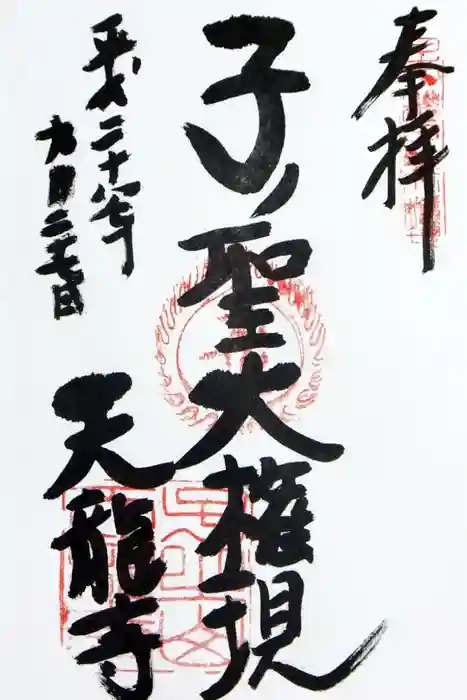 奉拝
子ノ聖大権現
天龍寺
平成二十八年
九月二十七日